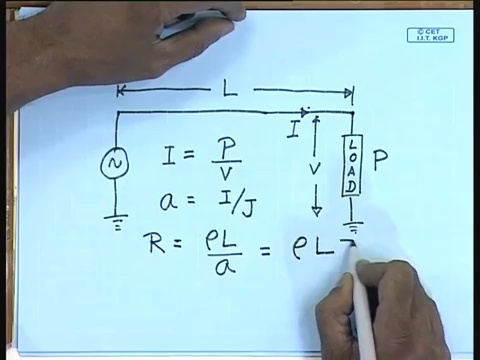 © CET
I.I.T. KGP
L
I
V
LOAD
P
I = P/V
a = I/J
R = ρL/a = ρL